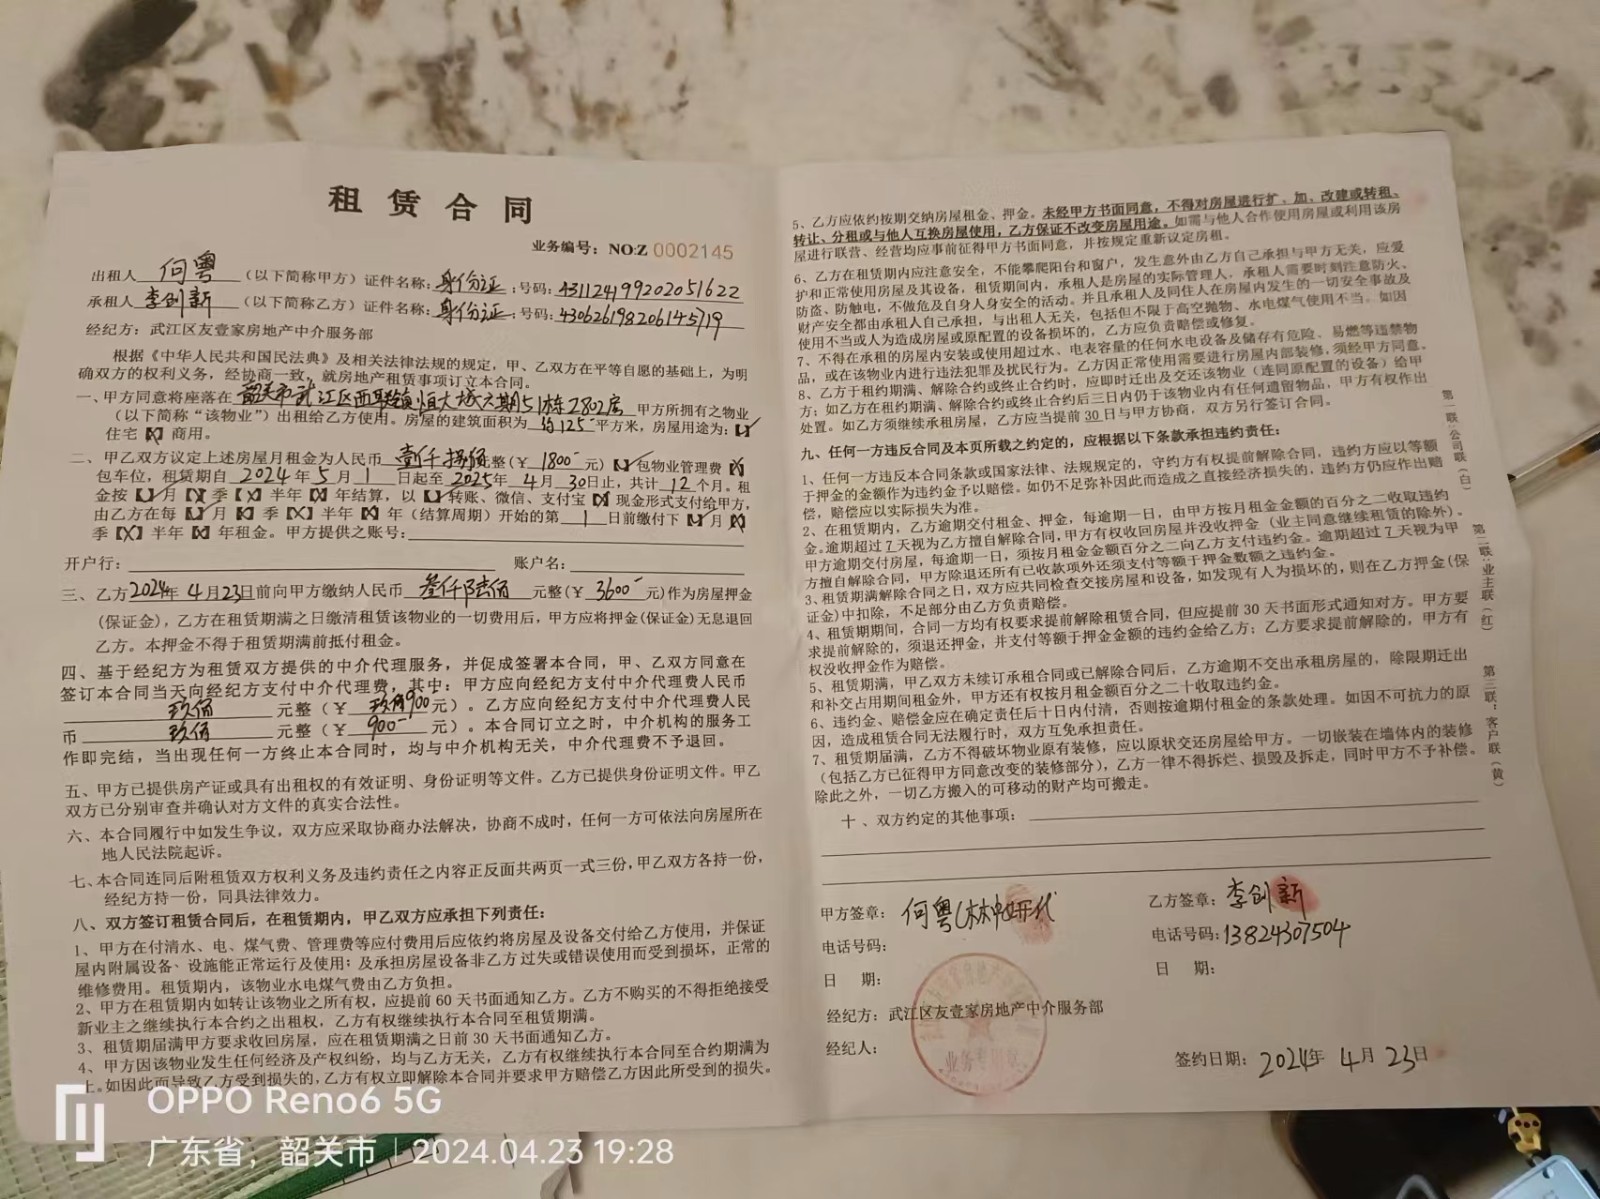 租赁合同
业务编号：NO:Z 0002145
出租人 何粤 （以下简称甲方）证件名称：身份证；号码：431124199202051622
承租人 李创新 （以下简称乙方）证件名称：身份证；号码：430626198206145719
经纪方：武江区友壹家房地产中介服务部
根据《中华人民共和国民法典》及相关法律法规的规定，甲、乙双方在平等自愿的基础上，为明
确双方的权利义务，经协商一致，就房地产租赁事项订立本合同。
一、甲方同意将座落在 韶关市武江区西联镇恒大城六期51栋2802房 甲方所拥有之物业
（以下简称“该物业”）出租给乙方使用。房屋的建筑面积为 约125 平方米，房屋用途为：【✓】
住宅【X】商用。
二、甲乙双方议定上述房屋月租金为人民币 壹仟捌佰 元整（￥ 1800 元）【✓】包物业管理费【X】
包车位，租赁期自 2024 年 5 月 1 日起至 2025 年 4 月 30 日止，共计 12 个月。租
金按【✓】月【X】季【X】半年【X】年结算，以【✓】转账、微信、支付宝【X】现金形式支付给甲方，
由乙方在每【✓】月【X】季【X】半年【X】年（结算周期）开始的第 1 日前缴付下【✓】月【X】
季【X】半年【X】年租金。甲方提供之账号：
开户行： 账户名：
三、乙方 2024年 4月 23日前向甲方缴纳人民币 叁仟陆佰 元整（￥ 3600 元）作为房屋押金
(保证金)，乙方在租赁期满之日缴清租赁该物业的一切费用后，甲方应将押金(保证金)无息退回
乙方。本押金不得于租赁期满前抵付租金。
四、基于经纪方为租赁双方提供的中介代理服务，并促成签署本合同，甲、乙双方同意在
签订本合同当天向经纪方支付中介代理费，其中：甲方应向经纪方支付中介代理费人民币
玖佰 元整（￥ 玖佰900 元）。乙方应向经纪方支付中介代理费人民
币 玖佰 元整（￥ 900 元）。本合同订立之时，中介机构的服务工
作即完结，当出现任何一方终止本合同时，均与中介机构无关，中介代理费不予退回。
五、甲方已提供房产证或具有出租权的有效证明、身份证明等文件。乙方已提供身份证明文件。甲乙
双方已分别审查并确认对方文件的真实合法性。
六、本合同履行中如发生争议，双方应采取协商办法解决，协商不成时，任何一方可依法向房屋所在
地人民法院起诉。
七、本合同连同后附租赁双方权利义务及违约责任之内容正反面共两页一式三份，甲乙双方各持一份，
经纪方持一份，同具法律效力。
八、双方签订租赁合同后，在租赁期内，甲乙双方应承担下列责任：
1、甲方在付清水、电、煤气费、管理费等应付费用后应依约将房屋及设备交付给乙方使用，并保证
屋内附属设备、设施能正常运行及使用；及承担房屋设备非乙方过失或错误使用而受到损坏，正常的
维修费用。租赁期内，该物业水电煤气费由乙方负担。
2、甲方在租赁期内如转让该物业之所有权，应提前 60 天书面通知乙方。乙方不购买的不得拒绝接受
新业主之继续执行本合约之出租权，乙方有权继续执行本合同至租赁期满。
3、租赁期届满甲方要求收回房屋，应在租赁期满之日前 30 天书面通知乙方。
4、甲方因该物业发生任何经济及产权纠纷，均与乙方无关，乙方有权继续执行本合同至合约期满为
上。如因此而导致乙方受到损失的，乙方有权立即解除本合同并要求甲方赔偿乙方因此所受到的损失。
5、乙方应依约按期交纳房屋租金、押金。未经甲方书面同意，不得对房屋进行扩、加、改建或转租、
转让、分租或与他人互换房屋使用，乙方保证不改变房屋用途。如需与他人合作使用房屋或利用该房
屋进行联营、经营均应事前征得甲方书面同意，并按规定重新议定房租。
6、乙方在租赁期内应注意安全，不能攀爬阳台和窗户，发生意外由乙方自己承担与甲方无关，应爱
护和正常使用房屋及其设备，租赁期间内，承租人是房屋的实际管理人，承租人需要时刻注意防火、
防盗、防触电，不做危及自身人身安全的活动。并且承租人及同住人在房屋内发生的一切安全事故及
财产安全都由承租人自己承担，与出租人无关，包括但不限于高空抛物、水电煤气使用不当。如因
使用不当或人为造成房屋或原配置的设备损坏的，乙方应负责赔偿或修复。
7、不得在承租的房屋内安装或使用超过水、电表容量的任何水电设备及储存有危险、易燃等违禁物
品，或在该物业内进行违法犯罪及扰民行为。乙方因正常使用需要进行房屋内部装修，须经甲方同意。
8、乙方于租约期满、解除合约或终止合约时，应即时迁出及交还该物业（连同原配置的设备）给甲
方；如乙方在租约期满、解除合约或终止合约后三日内仍于该物业内有任何遗留物品，甲方有权作出
处置。如乙方须继续承租房屋，乙方应当提前 30 日与甲方协商，双方另行签订合同。
九、任何一方违反合同及本页所载之约定的，应根据以下条款承担违约责任：
1、任何一方违反本合同条款或国家法律、法规规定的，守约方有权提前解除合同，违约方应以等额
于押金的金额作为违约金予以赔偿。如仍不足弥补因此而造成之直接经济损失的，违约方仍应作出赔
偿，赔偿应以实际损失为准。
2、在租赁期内，乙方逾期交付租金、押金，每逾期一日，由甲方按月租金金额的百分之二收取违约
金。逾期超过 7 天视为乙方擅自解除合同，甲方有权收回房屋并没收押金（业主同意继续租赁的除外）。
甲方逾期交付房屋，每逾期一日，须按月租金金额百分之二向乙方支付违约金。逾期超过 7 天视为甲
方擅自解除合同，甲方除退还所有已收款项外还须支付等额于押金数额之违约金。
3、租赁期满解除合同之日，双方应共同检查交接房屋和设备，如发现有人为损坏的，则在乙方押金（保
证金)中扣除，不足部分由乙方负责赔偿。
4、租赁期期间，合同一方均有权要求提前解除租赁合同，但应提前 30 天书面形式通知对方。甲方要
求提前解除的，须退还押金，并支付等额于押金金额的违约金给乙方；乙方要求提前解除的，甲方有
权没收押金作为赔偿。
5、租赁期满，甲乙双方未续订承租合同或已解除合同后，乙方逾期不交出承租房屋的，除限期迁出
和补交占用期间租金外，甲方还有权按月租金额百分之二十收取违约金。
6、违约金、赔偿金应在确定责任后十日内付清，否则按逾期付租金的条款处理。如因不可抗力的原
因，造成租赁合同无法履行时，双方互免承担责任。
7、租赁期届满，乙方不得破坏物业原有装修，应以原状交还房屋给甲方。一切嵌装在墙体内的装修
（包括乙方已征得甲方同意改变的装修部分），乙方一律不得拆烂、损毁及拆走，同时甲方不予补偿。
除此之外，一切乙方搬入的可移动的财产均可搬走。
十、双方约定的其他事项：
甲方签章：何粤
乙方签章：李创新
电话号码：
电话号码：13824307504
日 期：
日 期：
经纪方：武江区友壹家房地产中介服务部
经纪人：
业务专用章
签约日期：2024年 4月 23日
第一联：公司联（白） 第二联：业主联（红） 第三联：客户联（黄）
OPPO Reno6 5G
广东省，韶关市 | 2024.04.23 19:28